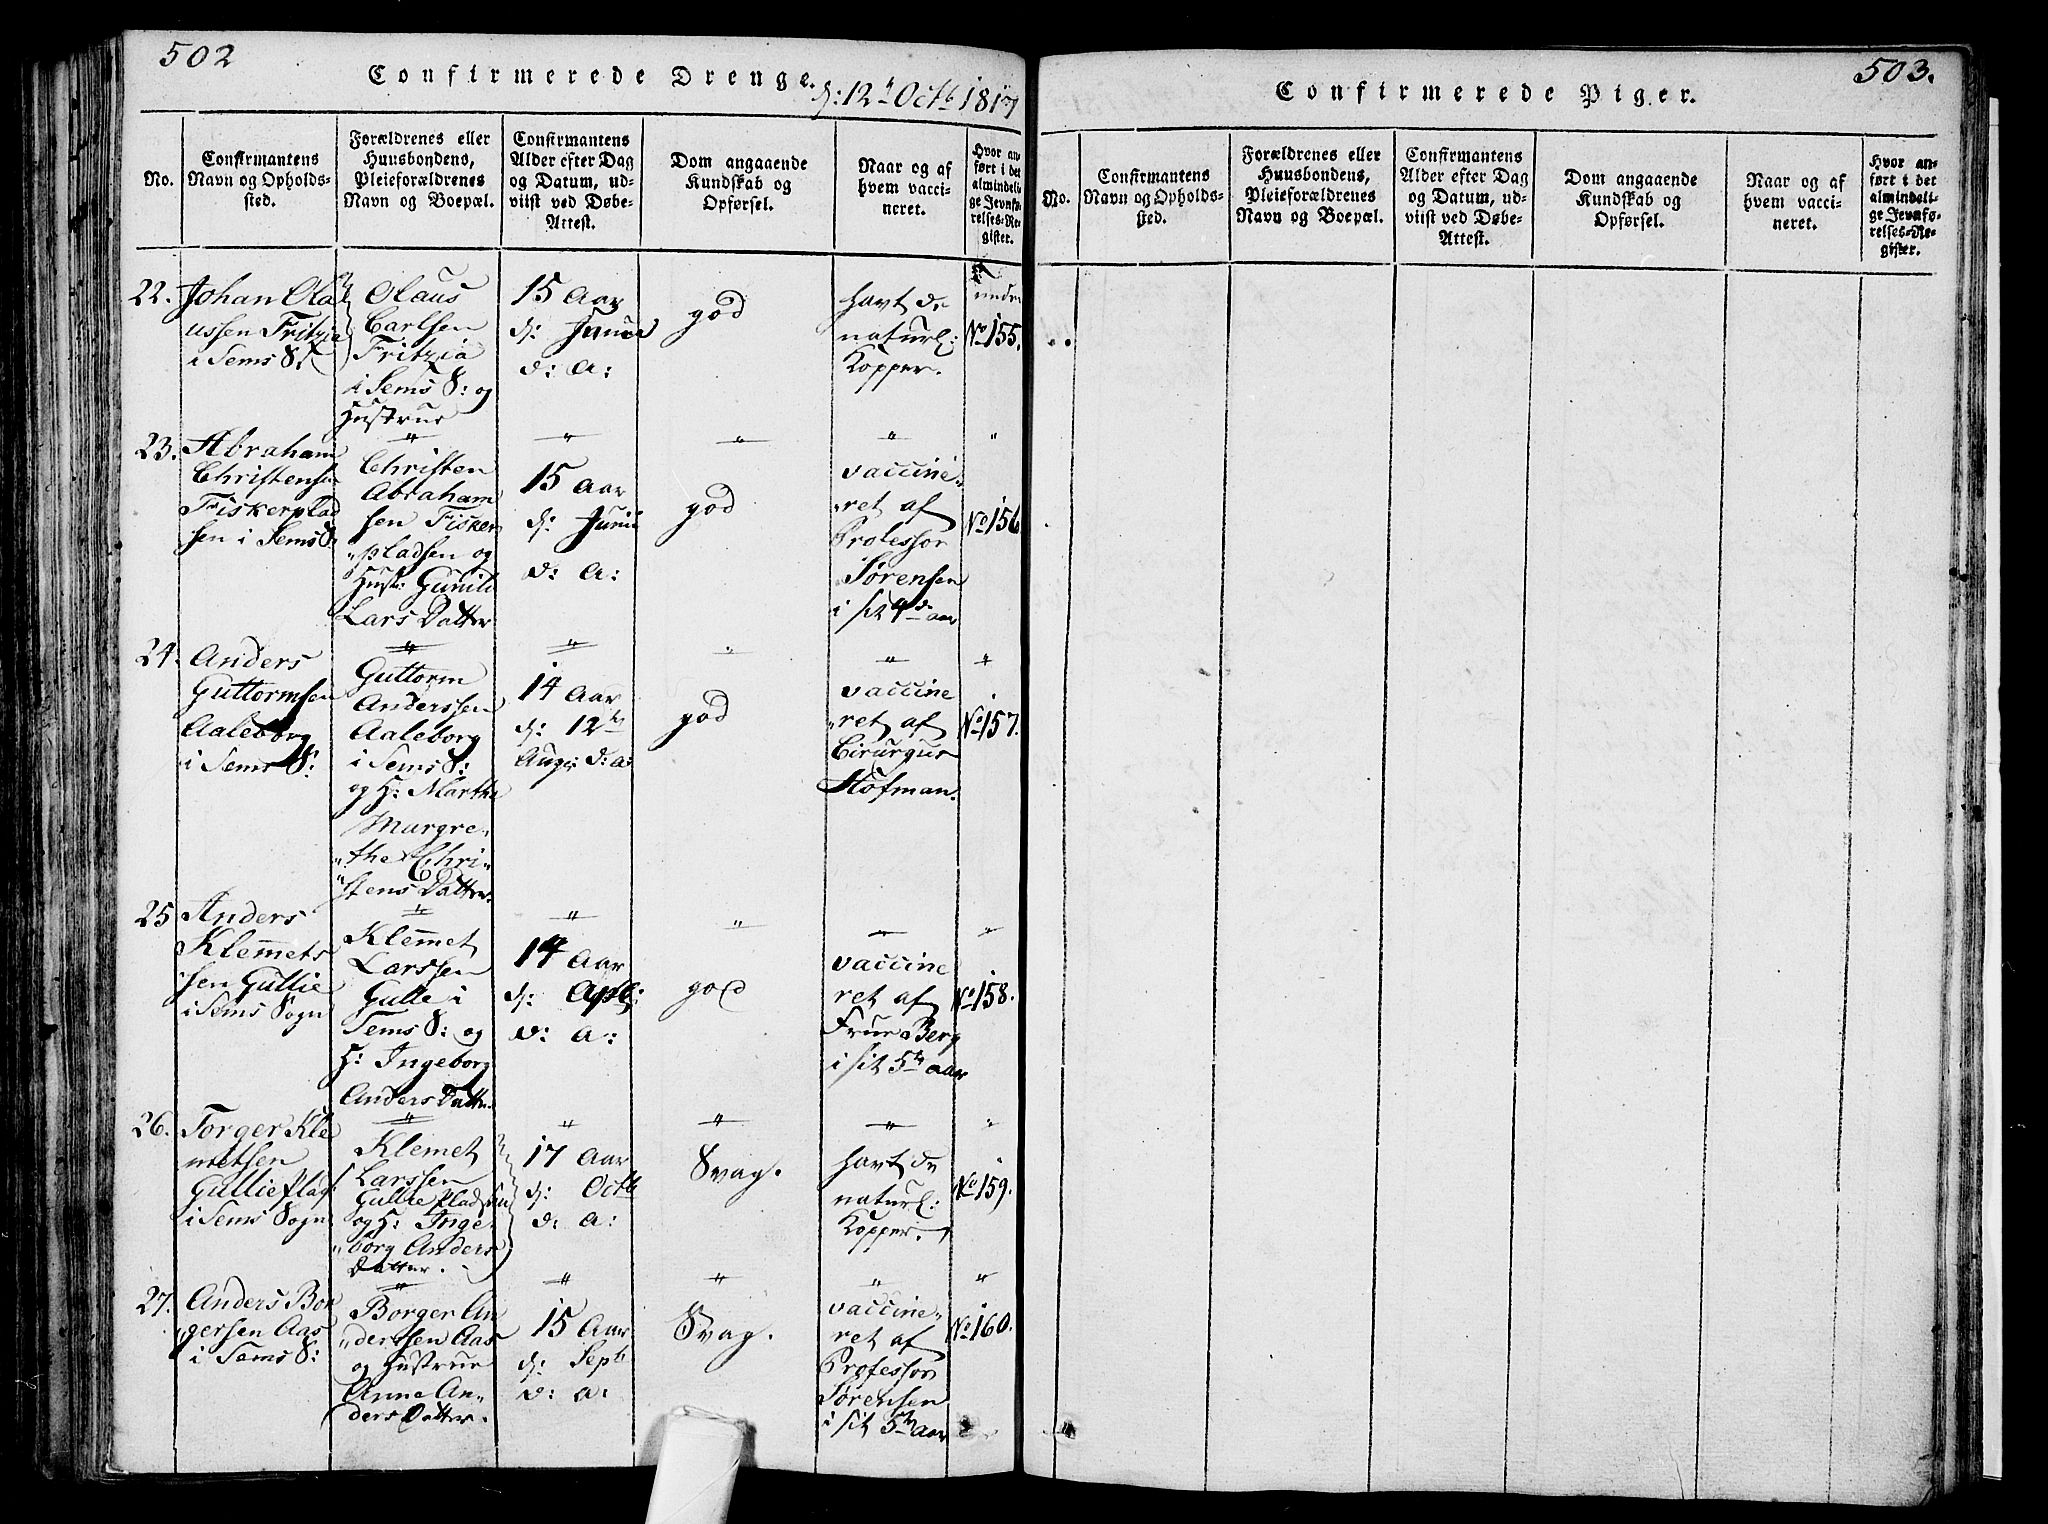 502
Confirmerede Drenge.
d: 12t Octb 1817
No.
Confirmantens
Navn og Opholds-
sted.
Forældrenes eller
Huusbondens,
Pleieforældrenes
Navn og Boepæl.
Confirmantens
Alder efter Dag
og Datum, ud-
viist ved Døbe-
Attest.
Dom angaaende
Kundskab og
Opførsel.
Naar og af
hvem vacci-
neret.
Hvor an-
ført i det
almindeli-
ge Jevnfø-
relses-Re-
gister.
22.
Johan Ola
ussen Fritzia
i Sems S.
Olaus
Carlsen
Fritzia
i Sems S: og
Hustrue
15 Aar
d: Junii
d: a:
god
havt de
naturl:
Kopper.
No 155.
23.
Abraham
Christensen
Fiskerplad
sen i Sems S:
Christen
Abraham
sen Fisker
"pladsen og
Hust: Gunild
Lars Datter
15 Aar
d: Junii
d: a:
god
vaccine"
"ret af
Professor
Sørensen
i sit 4de aar
No 156
24.
Anders
Guttormsen
Aaleborg
i Sems S:
Guttorm
Anderssen
Aaleborg
i Sems S:
og H: Marthe
Margre"
"the Chri"
"stens Datter.
14 Aar
d: 12te
Augs d: a:
god
vaccine
"ret af
Cirurgus
Hofman.
No 157.
25
Anders
Klemets
sen Gullie
i Sems Sogn
Klemet
Larssen
Gulle i
Sems S: og
H: Ingeborg
Anders Datter.
14 Aar
d: Apl:
d: a:
god
vaccine
ret af
Frue Berg
i sit 5te aar
No 158.
26.
Torger Kle
metsen
Gullie Plads:
i Sems Sogn
Klemet
Larssen
Gullie Pladsen
og H: Inge"
"borg Anders
Datter.
17 Aar
d: Octb
d: a:
Svag.
havt de
naturl:
Kopper.
No 159.
27.
Anders Bor
"gersen Aas
i Sems S:
Borger An
"derssen Aas
og Hustrue
Anne An"
ders Datter.
15 Aar
d: Septb
d: a:
Svag.
vaccine"
ret af
Professor
Sørensen
i sit 5te aar
No 160.
503.
Confirmerede Piger.
No.
Confirmantens
Navn og Opholds-
sted.
Forældrenes eller
Huusbondens,
Pleieforældrenes
Navn og Boepæl.
Confirmantens
Alder efter Dag
og Datum, ud-
viist ved Døbe-
Attest.
Dom angaaende
Kundskab og
Opførsel.
Naar og af
hvem vacci-
neret.
Hvor an-
ført i det
almindeli-
ge Jevnfø-
relses-Re-
gister.